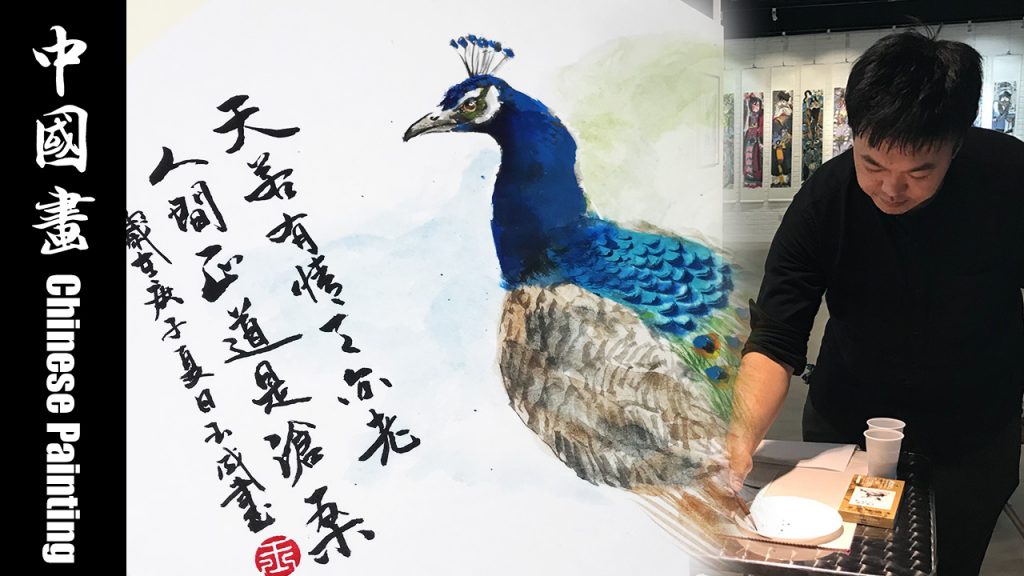 中國畫
Chinese Painting
天若有情天亦老
人間正道是滄桑
歲在庚子夏日